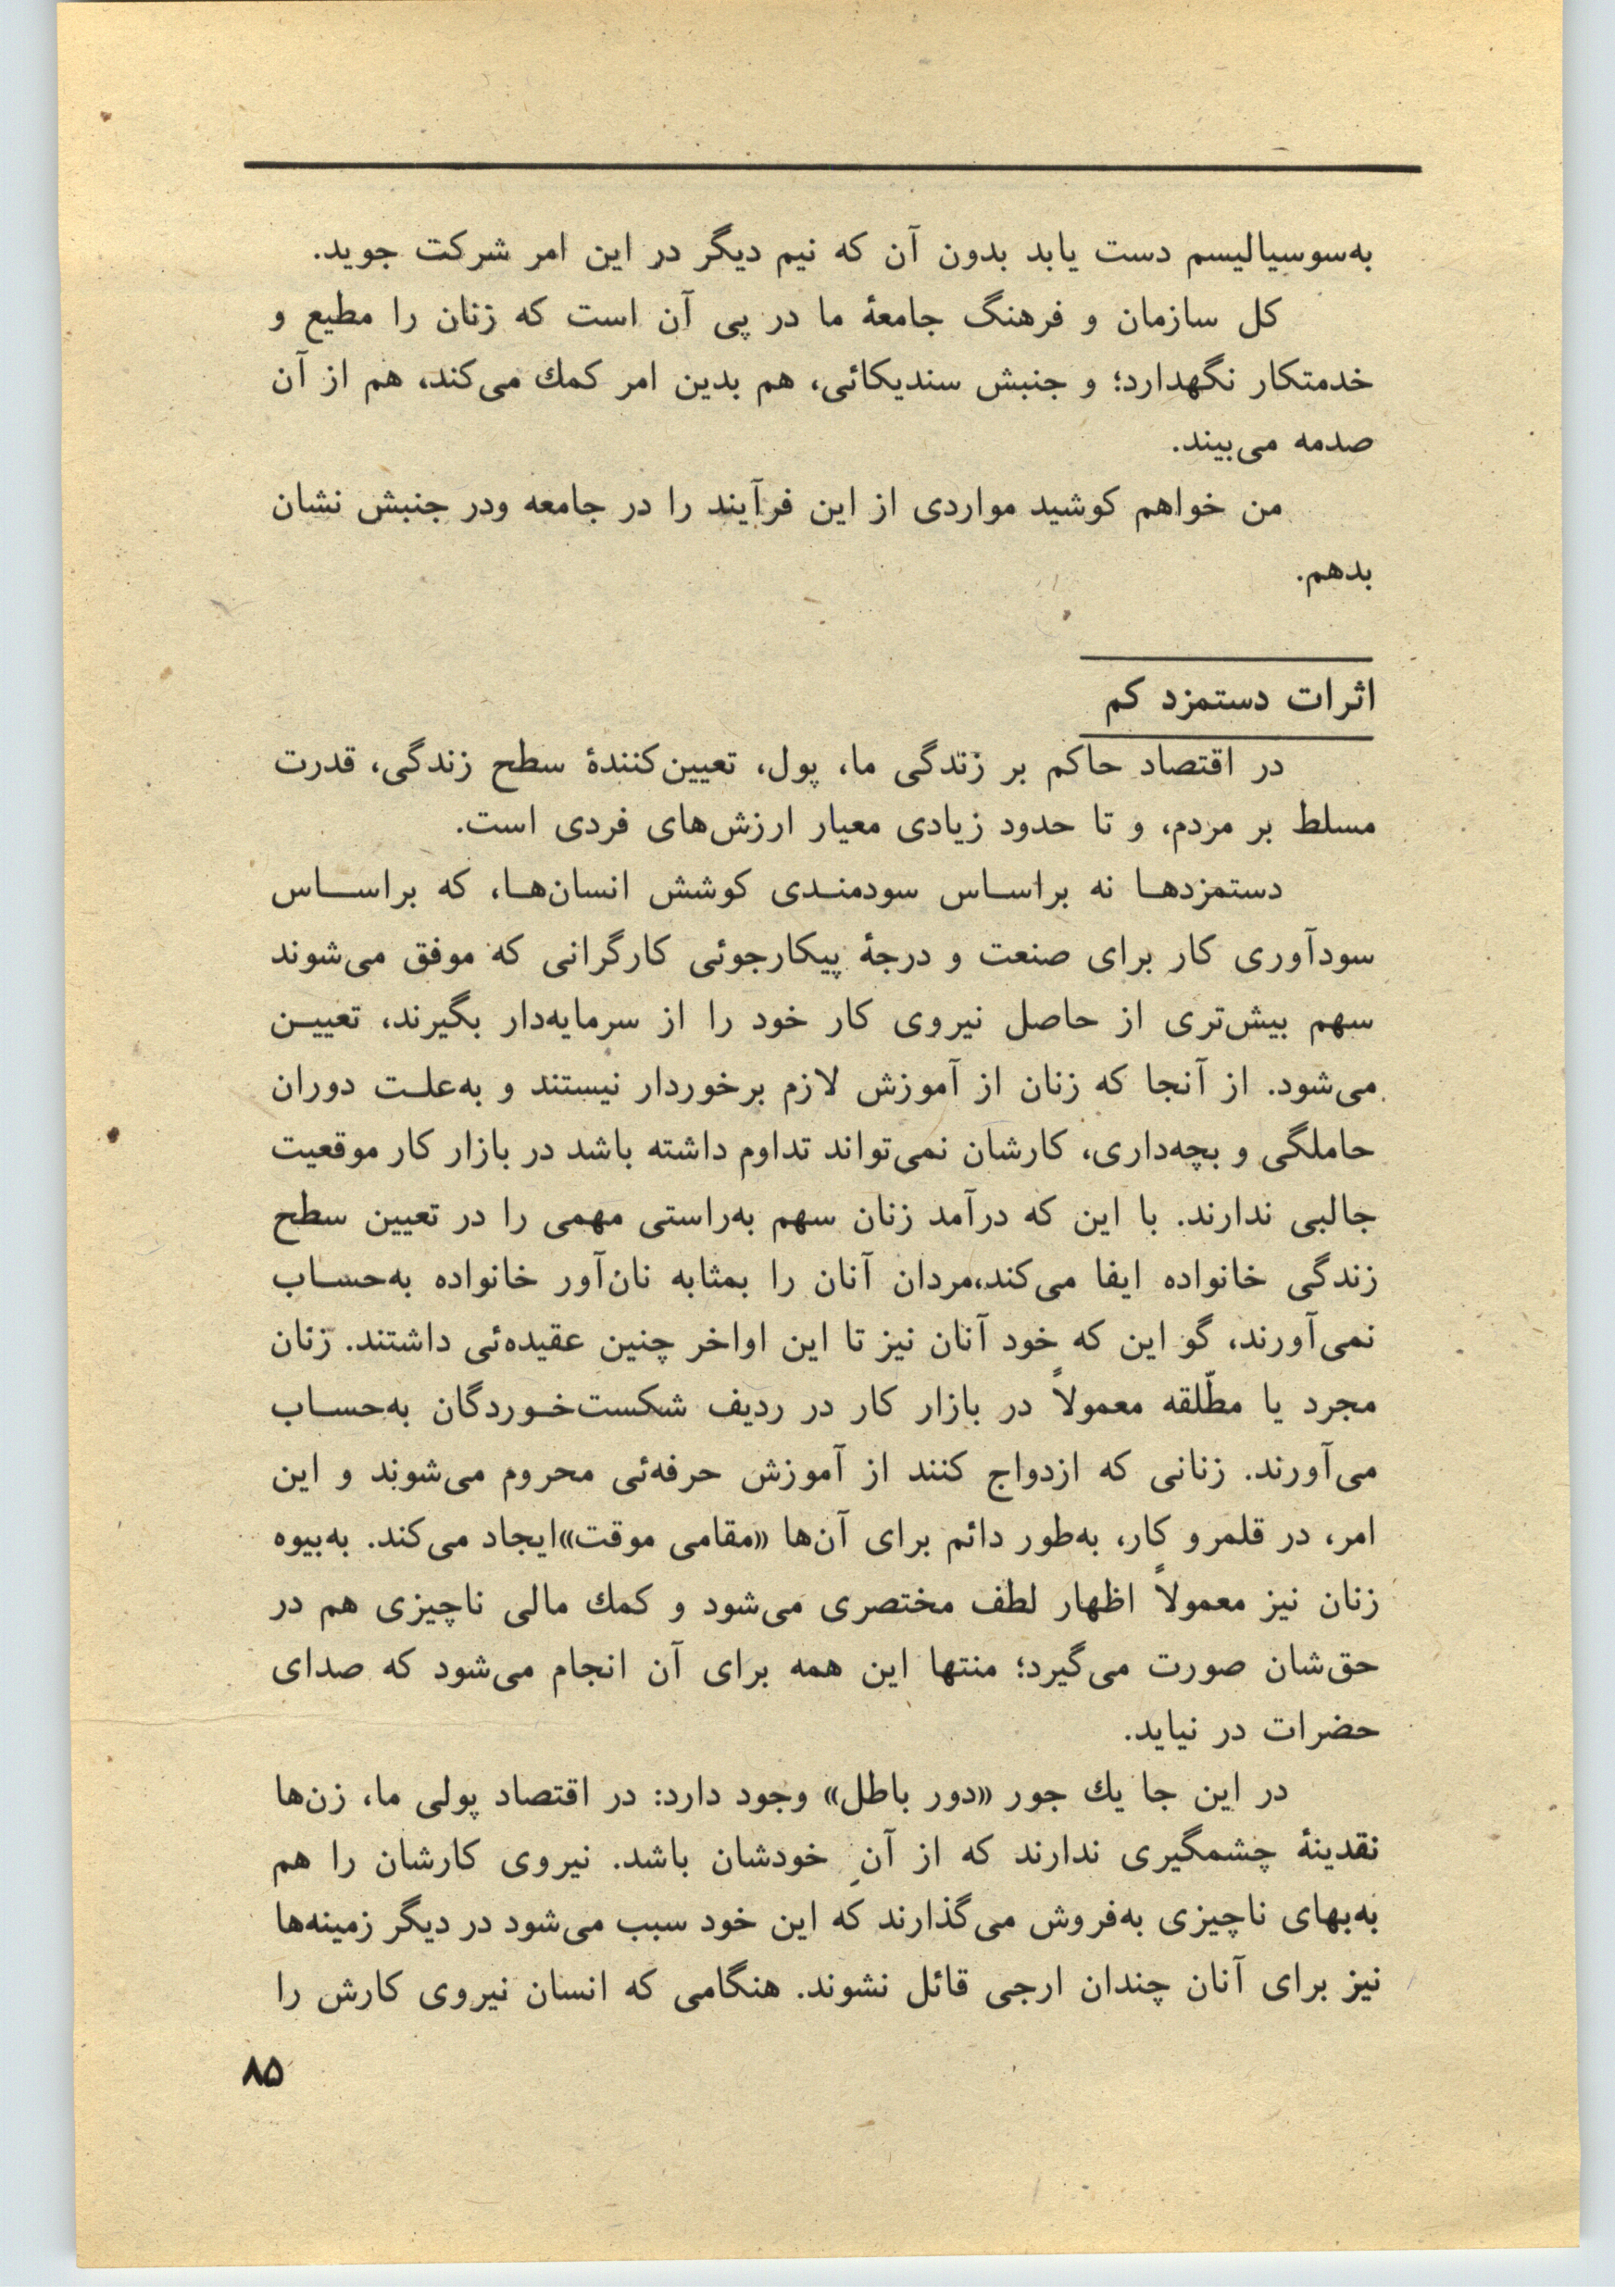 به‌سوسیالیسم دست یابد بدون آن که نیم دیگر در این امر شرکت جوید.
کل سازمان و فرهنگ جامعهٔ ما در پی آن است که زنان را مطیع و
خدمتکار نگهدارد؛ و جنبش سندیکائی، هم بدین امر کمك می‌کند، هم از آن
صدمه می‌بیند.
من خواهم کوشید مواردی از این فرآیند را در جامعه ودر جنبش نشان
بدهم.
اثرات دستمزد کم
در اقتصاد حاکم بر زندگی ما، پول، تعیین‌کنندهٔ سطح زندگی، قدرت
مسلط بر مردم، و تا حدود زیادی معیار ارزش‌های فردی است.
دستمزدهـا نه براسـاس سودمنـدی کوشش انسان‌هـا، که براسـاس
سودآوری کار برای صنعت و درجهٔ پیکارجوئی کارگرانی که موفق می‌شوند
سهم بیش‌تری از حاصل نیروی کار خود را از سرمایه‌دار بگیرند، تعییـن
می‌شود. از آنجا که زنان از آموزش لازم برخوردار نیستند و به‌علـت دوران
حاملگی و بچه‌داری، کارشان نمی‌تواند تداوم داشته باشد در بازار کار موقعیت
جالبی ندارند. با این که درآمد زنان سهم به‌راستی مهمی را در تعیین سطح
زندگی خانواده ایفا می‌کند،مردان آنان را بمثابه نان‌آور خانواده به‌حسـاب
نمی‌آورند، گو این که خود آنان نیز تا این اواخر چنین عقیده‌ئی داشتند. زنان
مجرد یا مطّلقه معمولاً در بازار کار در ردیف شکست‌خـوردگان به‌حسـاب
می‌آورند. زنانی که ازدواج کنند از آموزش حرفه‌ئی محروم می‌شوند و این
امر، در قلمرو کار، به‌طور دائم برای آن‌ها «مقامی موقت»ایجاد می‌کند. به‌بیوه
زنان نیز معمولاً اظهار لطف مختصری می‌شود و کمك مالی ناچیزی هم در
حق‌شان صورت می‌گیرد؛ منتها این همه برای آن انجام می‌شود که صدای
حضرات در نیاید.
در این جا یك جور «دور باطل» وجود دارد: در اقتصاد پولی ما، زن‌ها
نقدینهٔ چشمگیری ندارند که از آنِ خودشان باشد. نیروی کارشان را هم
به‌بهای ناچیزی به‌فروش می‌گذارند که این خود سبب می‌شود در دیگر زمینه‌ها
نیز برای آنان چندان ارجی قائل نشوند. هنگامی که انسان نیروی کارش را
۸۵